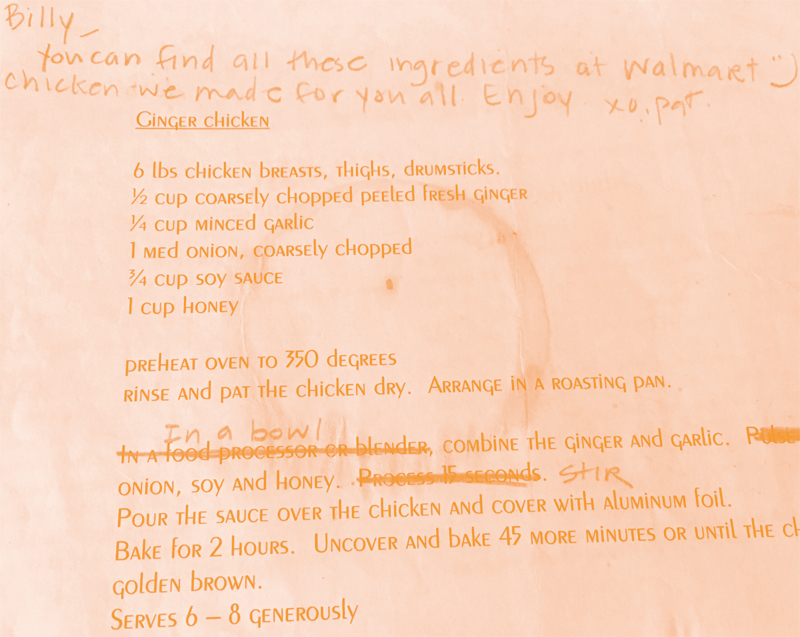 Billy,
You can find all these ingredients at Walmart :)
Chicken we made for you all. Enjoy xo, pat.
Ginger chicken
6 lbs chicken breasts, thighs, drumsticks.
½ cup coarsely chopped peeled fresh ginger
¼ cup minced garlic
1 med onion, coarsely chopped
¾ cup soy sauce
1 cup honey
preheat oven to 350 degrees
rinse and pat the chicken dry. Arrange in a roasting pan.
In a bowl
In a food processor or blender, combine the ginger and garlic. Pulse
onion, soy and honey. Process 15 seconds. STIR
Pour the sauce over the chicken and cover with aluminum foil.
Bake for 2 hours. Uncover and bake 45 more minutes or until the ch
golden brown.
Serves 6 – 8 generously